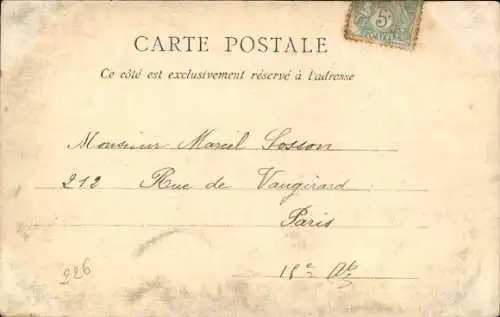 5c
CARTE POSTALE
Ce côté est exclusivement réservé à l'adresse
Monsieur Marcel Sosson
212 Rue de Vaugirard
Paris
15e Ar
226